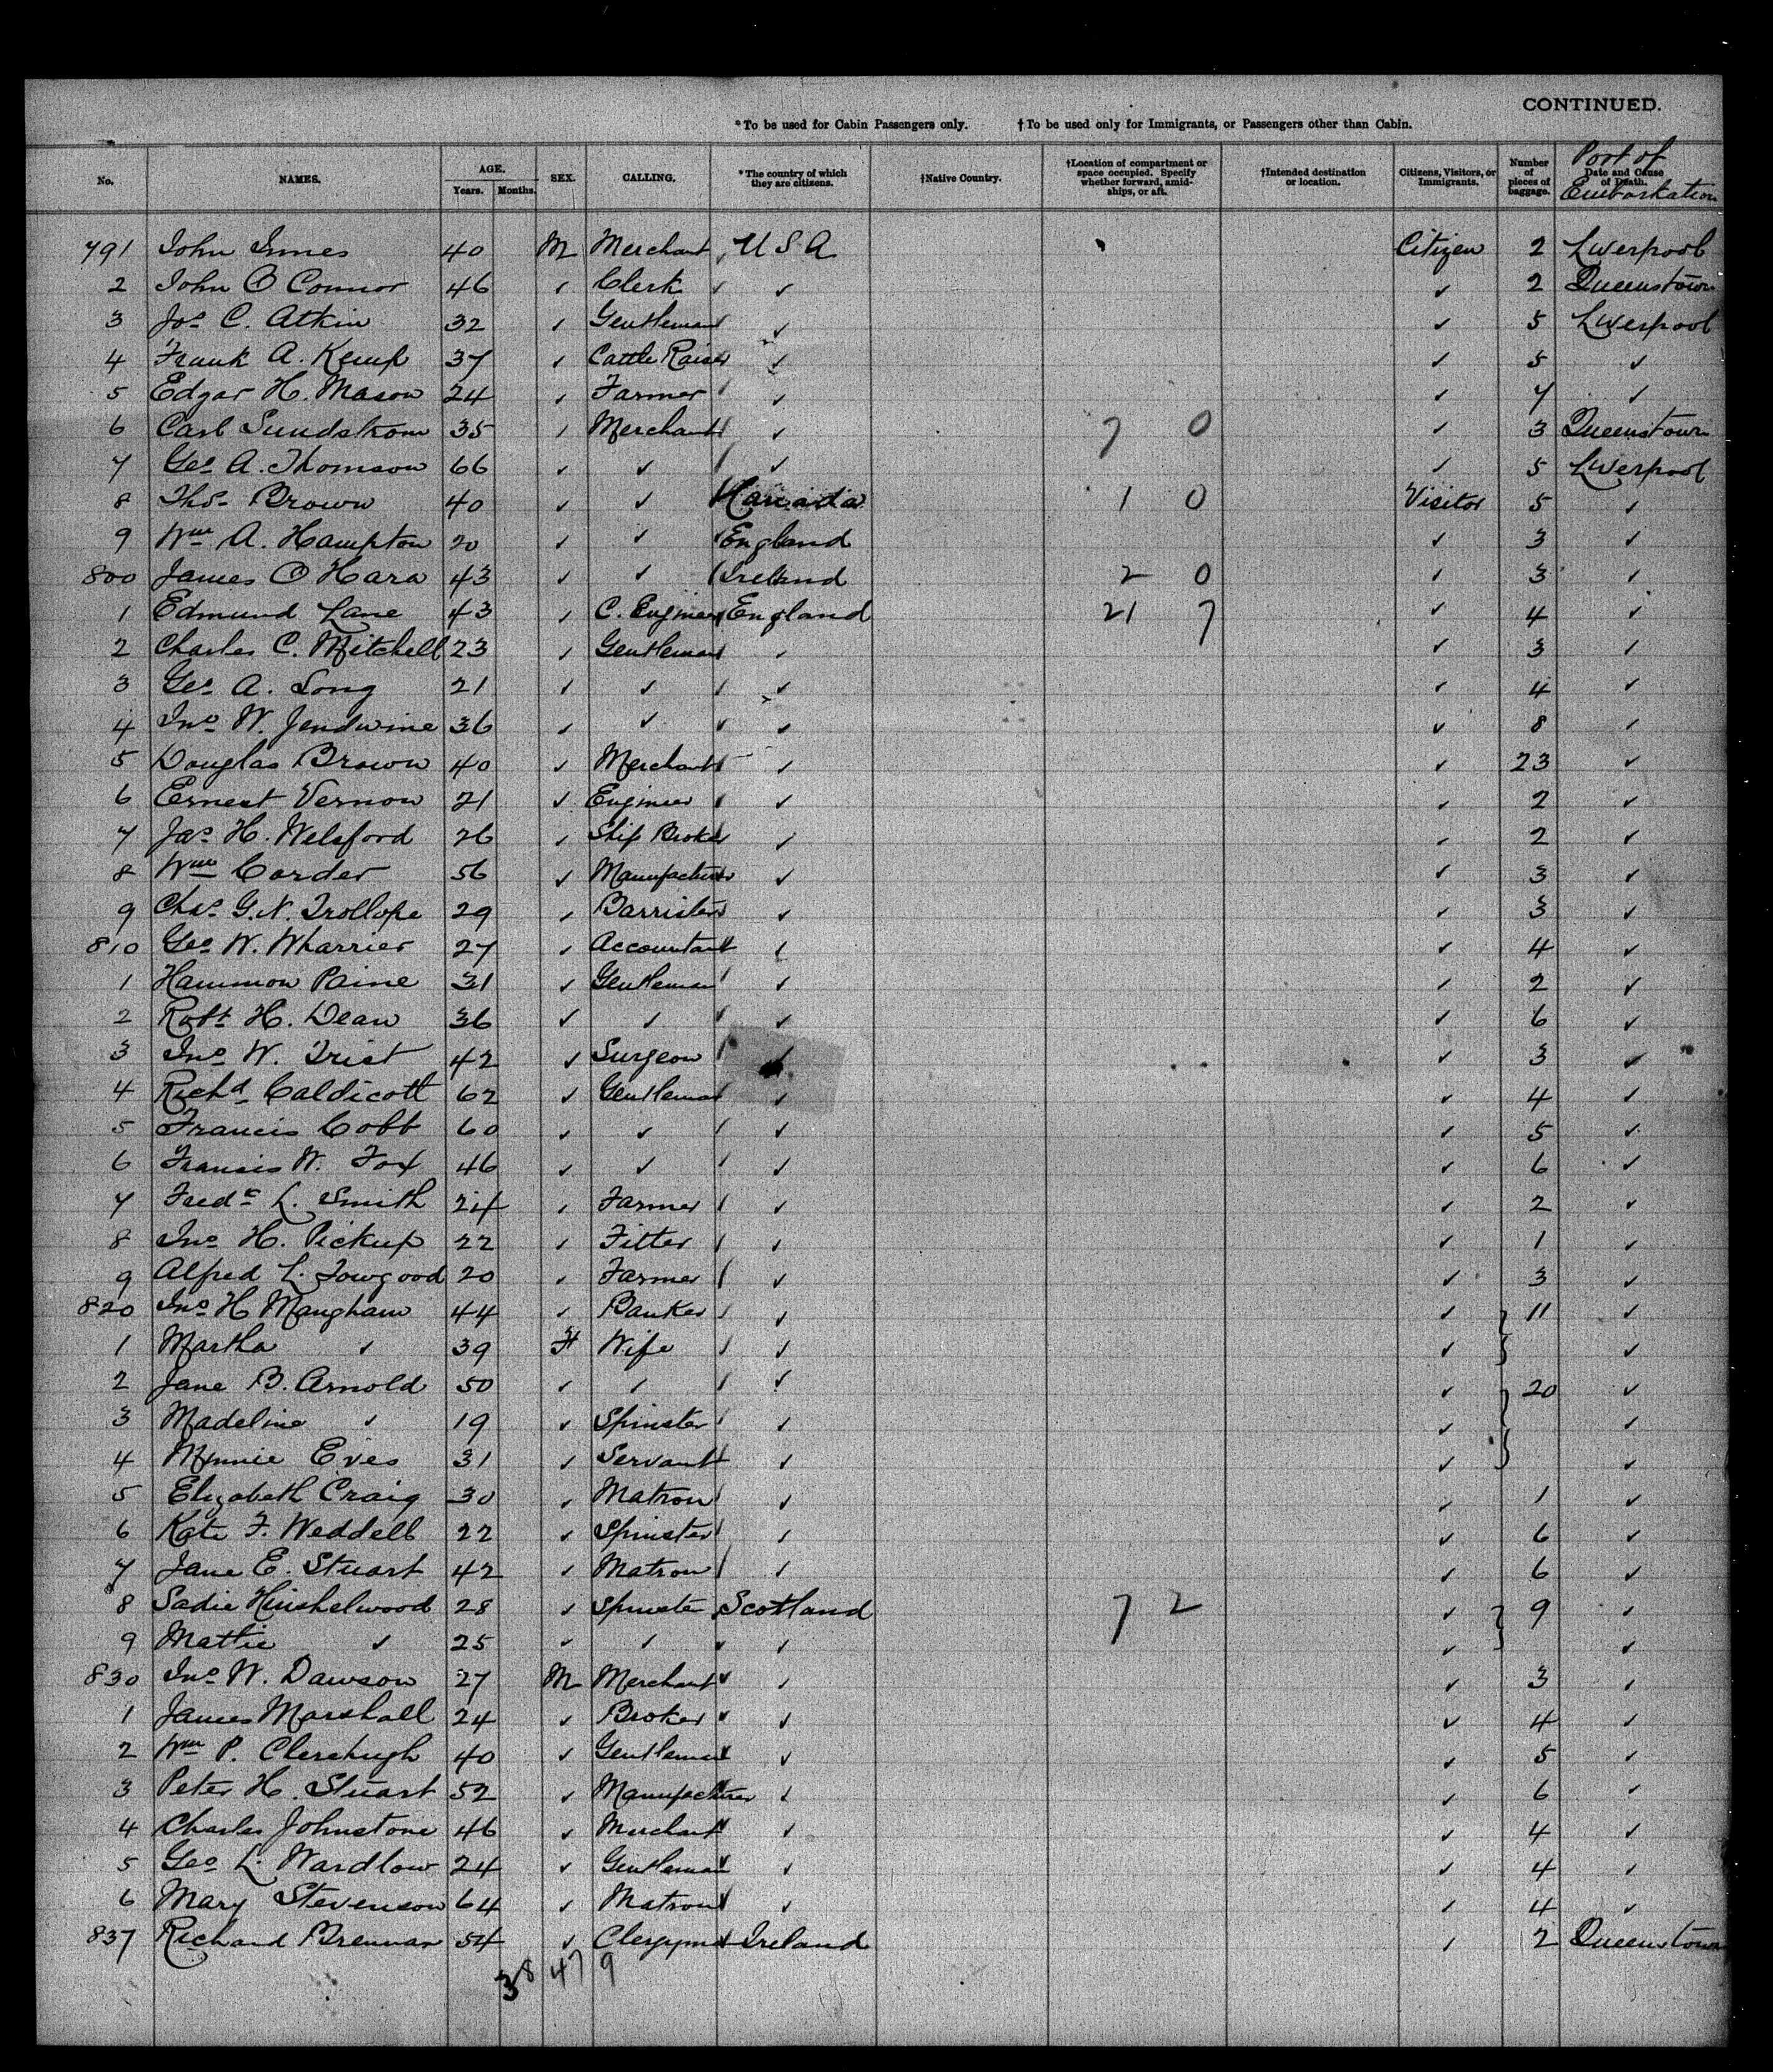 CONTINUED.
*To be used for Cabin Passengers only. †To be used only for Immigrants, or Passengers other than Cabin.
No. NAMES. AGE. Years. Months. SEX. CALLING. *The country of which they are citizens. †Native Country. †Location of compartment or space occupied. Specify whether forward, amidships, or aft. †Intended destination or location. Citizens, Visitors, or Immigrants. Number of pieces of baggage. Date and Cause of Death. Port of Embarkation
791 John Innes 40 M Merchant U S A Citizen 2 Liverpool
2 John O Connor 46 ✓ Clerk ✓ ✓ 2 Queenstown
3 Jos C. Atkin 32 ✓ Gentleman ✓ ✓ 5 Liverpool
4 Frank A. Kemp 37 ✓ Cattle Raiser ✓ ✓ 5 ✓
5 Edgar H. Mason 24 ✓ Farmer ✓ ✓ 7 ✓
6 Carl Sundstrom 35 ✓ Merchant ✓ 7 0 ✓ 3 Queenstown
7 Geo A. Thomson 66 ✓ ✓ ✓ ✓ 5 Liverpool
8 Thos Brown 40 ✓ ✓ Canada 1 0 Visitor 5 ✓
9 Wm A. Hampton 20 ✓ ✓ England ✓ 3 ✓
800 James O Hara 43 ✓ ✓ Ireland 2 0 ✓ 3 ✓
1 Edmund Lane 43 ✓ C. Engineer England 21 7 ✓ 4 ✓
2 Charles C. Mitchell 23 ✓ Gentleman ✓ ✓ 3 ✓
3 Geo A. Long 21 ✓ ✓ ✓ ✓ 4 ✓
4 Jno W. Jendwine 36 ✓ ✓ ✓ ✓ 8 ✓
5 Douglas Brown 40 ✓ Merchant ✓ ✓ 23 ✓
6 Ernest Vernon 21 ✓ Engineer ✓ ✓ 2 ✓
7 Jas H. Welsford 26 ✓ Ship Broker ✓ ✓ 2 ✓
8 Wm Corder 56 ✓ Manufacturer ✓ ✓ 3 ✓
9 Chas G. N. Trollope 29 ✓ Barrister ✓ ✓ 3 ✓
810 Geo W. Wharrier 27 ✓ Accountant ✓ ✓ 4 ✓
1 Hammon Paine 31 ✓ Gentleman ✓ ✓ 2 ✓
2 Robt H. Dean 36 ✓ ✓ ✓ ✓ 6 ✓
3 Jno W. Trist 42 ✓ Surgeon ✓ ✓ 3 ✓
4 Richd Caldicott 62 ✓ Gentleman ✓ ✓ 4 ✓
5 Francis Cobb 60 ✓ ✓ ✓ ✓ 5 ✓
6 Francis W. Fox 46 ✓ ✓ ✓ ✓ 6 ✓
7 Fredc L. Smith 24 ✓ Farmer ✓ ✓ 2 ✓
8 Jno H. Pickup 22 ✓ Fitter ✓ ✓ 1 ✓
9 Alfred L. Towgood 20 ✓ Farmer ✓ ✓ 3 ✓
820 Jno H Mangham 44 ✓ Banker ✓ ✓ 11 ✓
1 Martha ✓ 39 F Wife ✓ ✓ ✓
2 Jane B. Arnold 50 ✓ ✓ ✓ ✓ 20 ✓
3 Madeline ✓ 19 ✓ Spinster ✓ ✓ ✓
4 Minnie Eves 31 ✓ Servant ✓ ✓ ✓
5 Elizabeth Craig 30 ✓ Matron ✓ ✓ 1 ✓
6 Kate F. Weddell 22 ✓ Spinster ✓ ✓ 6 ✓
7 Jane E. Stuart 42 ✓ Matron ✓ ✓ 6 ✓
8 Sadie Hinshelwood 28 ✓ Spinster Scotland 7 2 ✓ 9 ✓
9 Mattie ✓ 25 ✓ ✓ ✓ ✓ ✓
830 Jno W. Dawson 27 M Merchant ✓ ✓ 3 ✓
1 James Marshall 24 ✓ Broker ✓ ✓ 4 ✓
2 Wm P. Clerehugh 40 ✓ Gentleman ✓ ✓ 5 ✓
3 Peter H. Stuart 52 ✓ Manufacturer ✓ ✓ 6 ✓
4 Charles Johnstone 46 ✓ Merchant ✓ ✓ 4 ✓
5 Geo L. Wardlow 24 ✓ Gentleman ✓ ✓ 4 ✓
6 Mary Stevenson 64 ✓ Matron ✓ ✓ 4 ✓
837 Richard Brennan 54 ✓ Clergyman Ireland ✓ 2 Queenstown
38 47 9